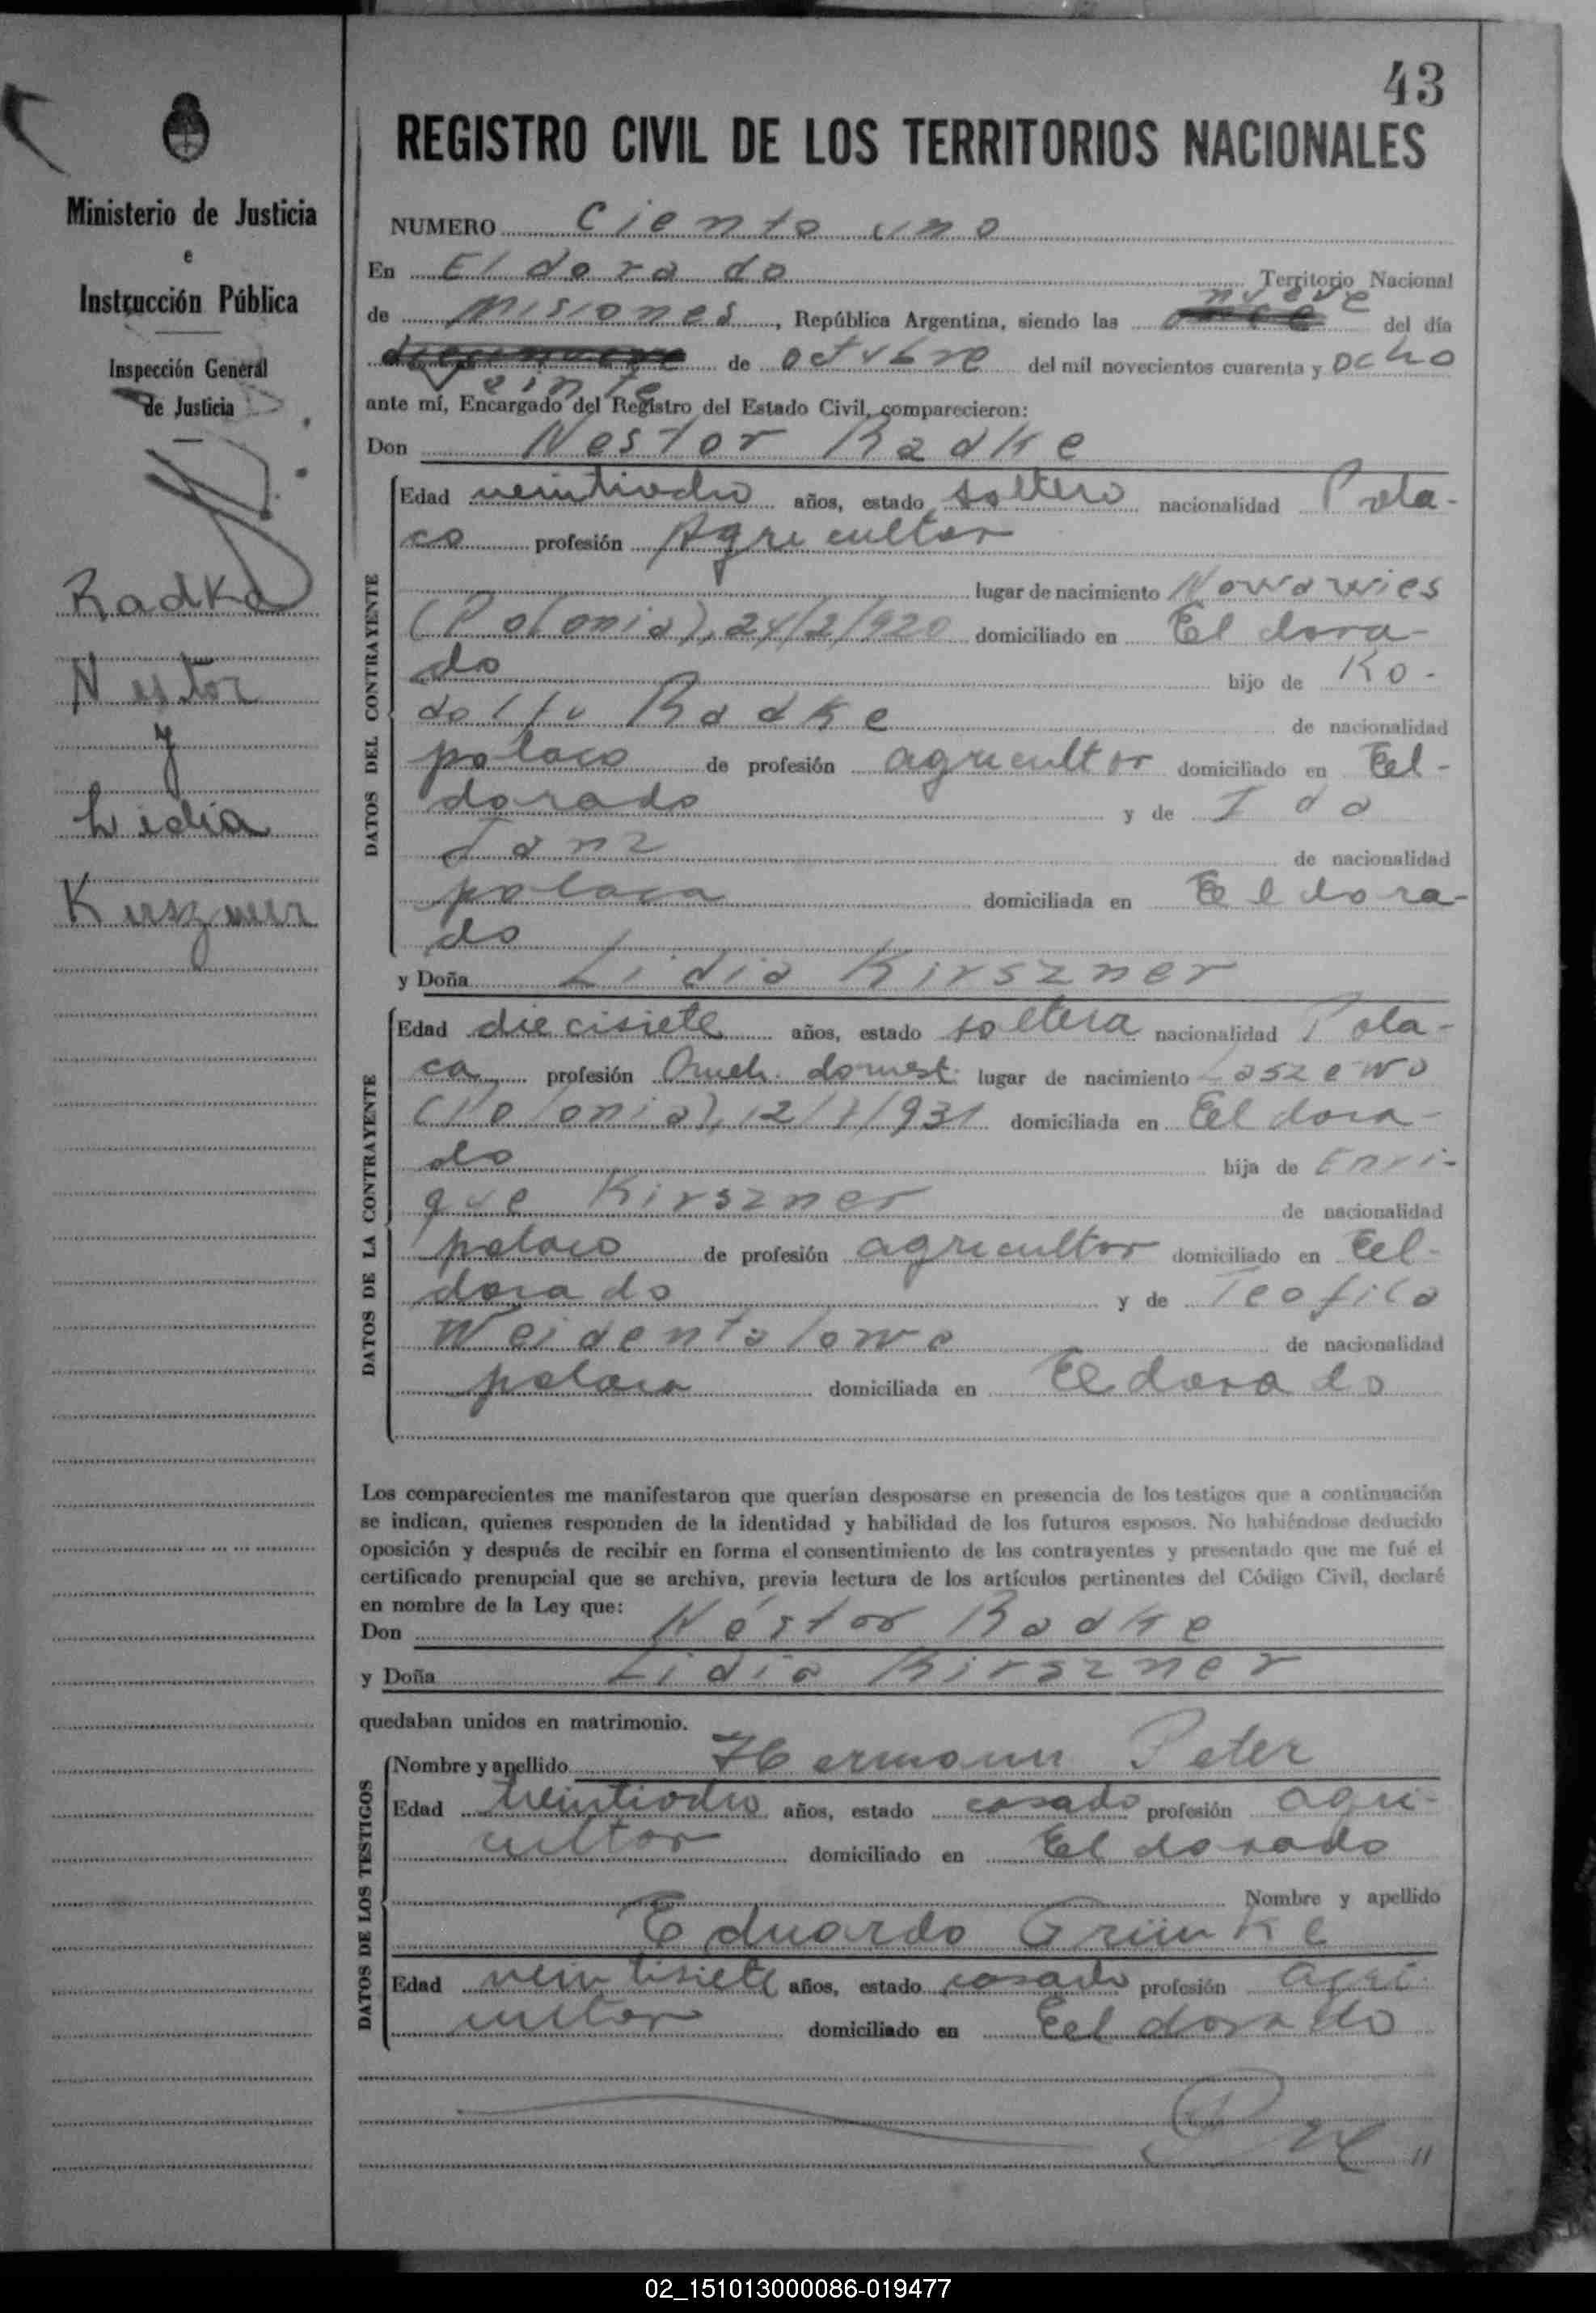 43
REGISTRO CIVIL DE LOS TERRITORIOS NACIONALES
Ministerio de Justicia
e
Instrucción Pública
Inspección General
de Justicia
Radke
Nestor
y
Lidia
Kirszner
NUMERO Ciento uno
En Eldorado Territorio Nacional
de Misiones, República Argentina, siendo las nueve del día
veinte de octubre del mil novecientos cuarenta y ocho
ante mí, Encargado del Registro del Estado Civil, comparecieron:
Don Nestor Radke
DATOS DEL CONTRAYENTE
Edad veintiocho años, estado soltero nacionalidad Pola-
co profesión Agricultor
lugar de nacimiento Nowawies
(Polonia), 24/2/920 domiciliado en Eldora-
do hijo de Ro-
dolfo Radke de nacionalidad
polaco de profesión agricultor domiciliado en El-
dorado y de Ida
Janz de nacionalidad
polaca domiciliada en Eldora-
do
y Doña Lidia Kirszner
DATOS DE LA CONTRAYENTE
Edad diecisiete años, estado soltera nacionalidad Pola-
ca profesión Queh. domest. lugar de nacimiento Laszewo
(Polonia), 12/1/931 domiciliada en Eldora-
do hija de Enri-
que Kirszner de nacionalidad
polaco de profesión agricultor domiciliado en El-
dorado y de Teofila
de nacionalidad
polaca domiciliada en Eldorado
Los comparecientes me manifestaron que querían desposarse en presencia de los testigos que a continuación
se indican, quienes responden de la identidad y habilidad de los futuros esposos. No habiéndose deducido
oposición y después de recibir en forma el consentimiento de los contrayentes y presentado que me fué el
certificado prenupcial que se archiva, previa lectura de los artículos pertinentes del Código Civil, declaré
en nombre de la Ley que:
Don Néstor Radke
y Doña Lidia Kirszner
quedaban unidos en matrimonio.
DATOS DE LOS TESTIGOS
Nombre y apellido Hermann Peter
Edad treintiocho años, estado casado profesión agri-
cultor domiciliado en Eldorado
Nombre y apellido
Eduardo Grünke
Edad veintisiete años, estado casado profesión agri-
cultor domiciliado en Eldorado
02_151013000086-019477